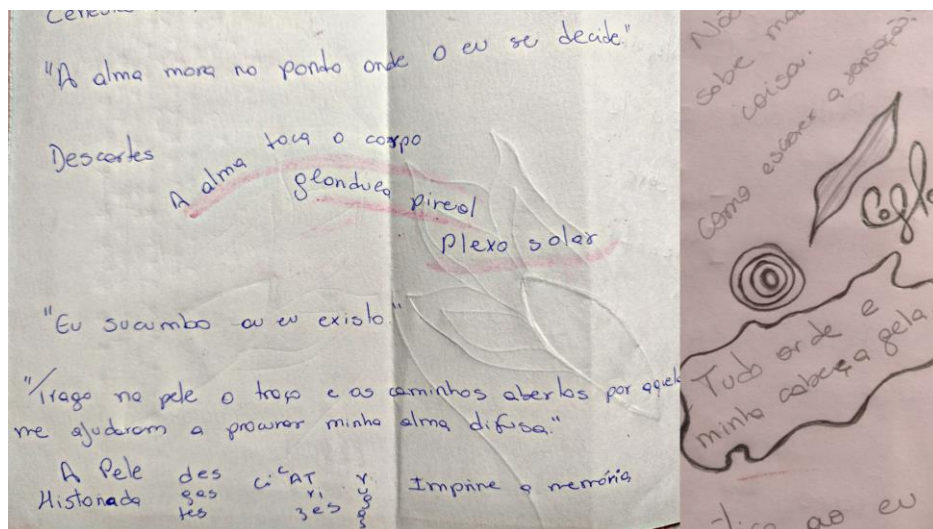 "A alma mora no pondo onde o eu se decide."
Descartes
A alma toca o corpo
glandula pireal
Plexo solar
"Eu sucumbo ou eu existo."
"Trago na pele o traço e as caminhos abertos por aquel
me ajudaram a procurar minha alma difusa."
A Pele
Historiada
des
gas
tes
ci^cAT
ri
zes
Imprime a memória
Não
sabe
coisa.
Como escrever a sensação.
Tudo arde e
minha cabeça gela
ao eu